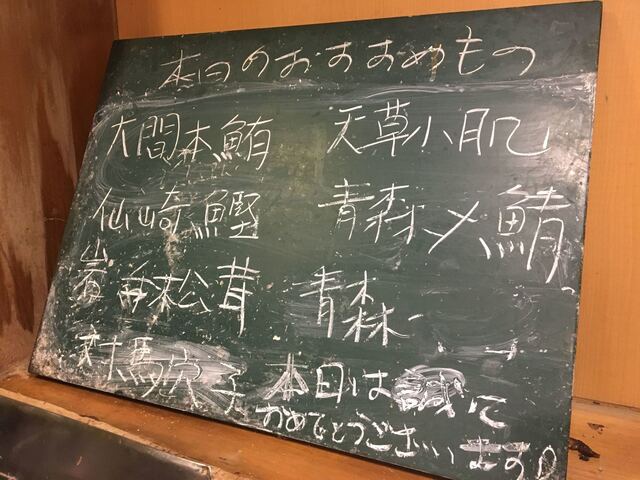 本日のおすすめもの
大間本鮪 天草小肌
仙崎鰹 青森〆鯖
岩手松茸 青森
対馬穴子 本日は
て
おめでとうございます